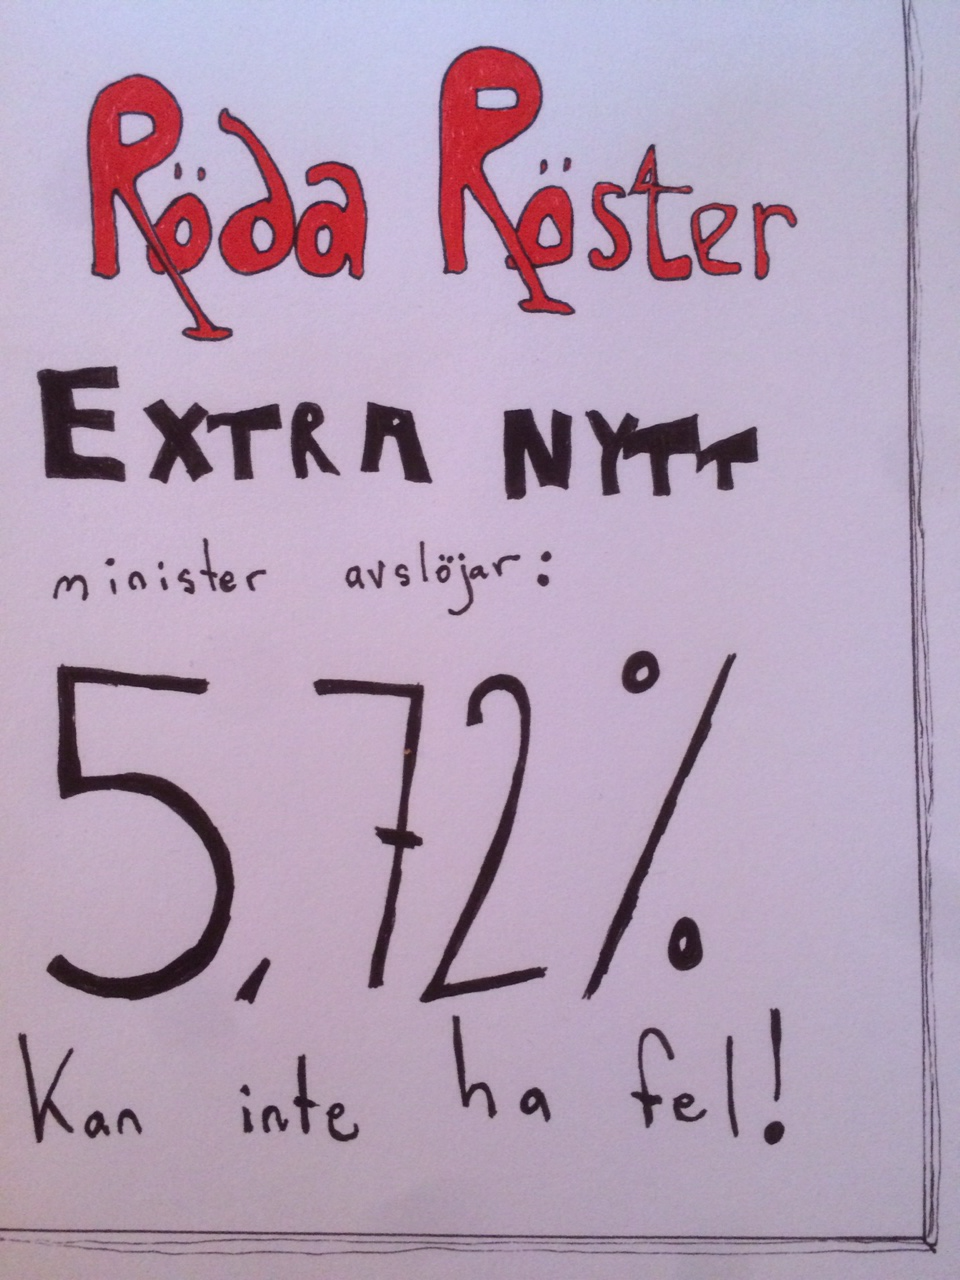 Röda Röster
EXTRA NYTT
minister avslöjar:
5,72%
Kan inte ha fel!